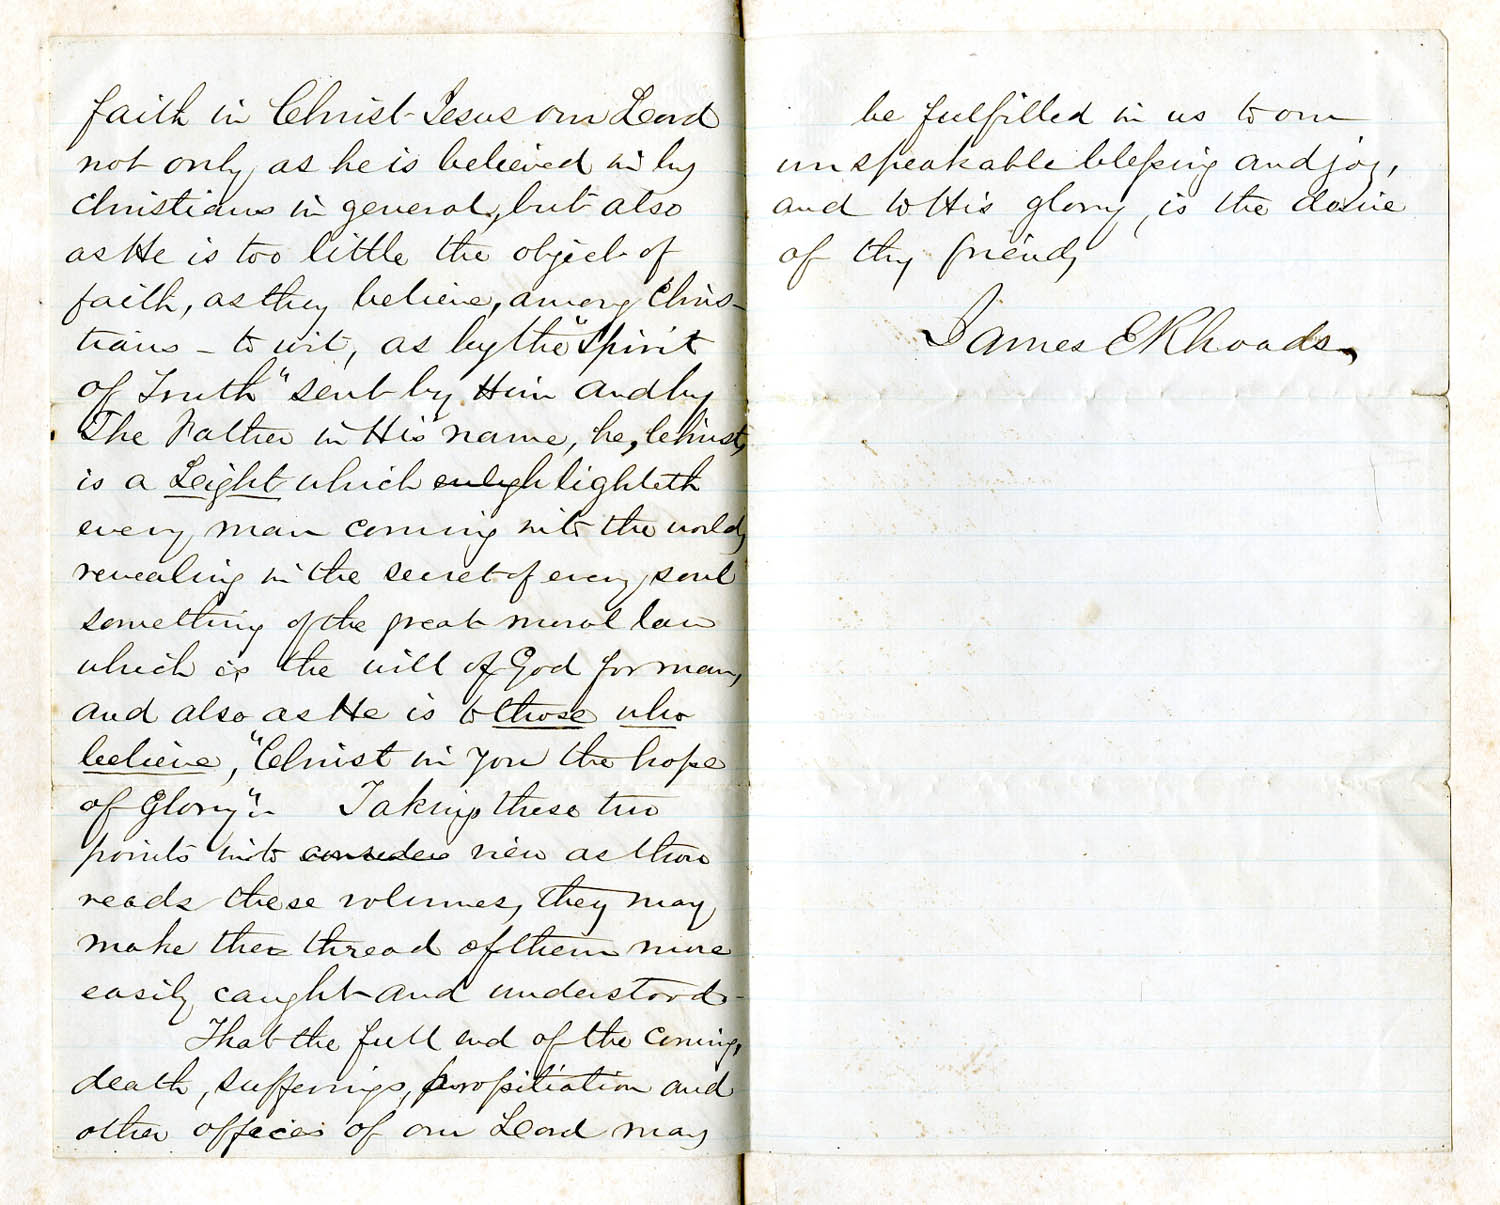 faith in Christ Jesus our Lord
not only as he is believed in by
Christians in general, but also
as He is too little the object of
faith, as they believe, among Chris-
tians – to wit, as by the "Spirit
of Truth" sent by Him and by
The Father in His name, he, Christ,
is a Light which enligh lighteth
every man coming into the world,
revealing in the secret of every soul
something of the great moral law
which is the will of God for man,
and also as He is to those who
believe, "Christ in you the hope
of Glory". Taking these two
points into consider view as thou
reads these volumes, they may
make the thread of them more
easily caught and understood –
That the full end of the coming,
death, sufferings, propitiation and
other offices of our Lord may
be fulfilled in us to our
unspeakable blessing and joy,
and to His glory, is the desire
of thy friend,
James E Rhoads.